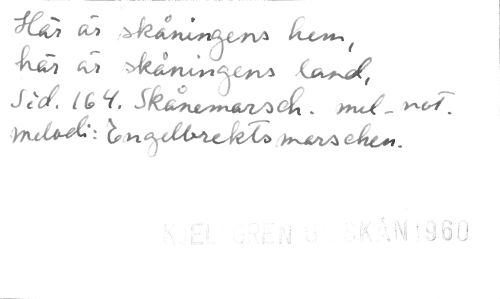 Här är skåningens hem,
här är skåningens land,
Sid. 164. Skånemarsch. mel-not.
melodi: Engelbrektsmarschen.
SKÅN 1960